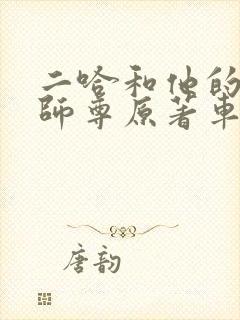 二哈和他的
師尊原著車
唐韵